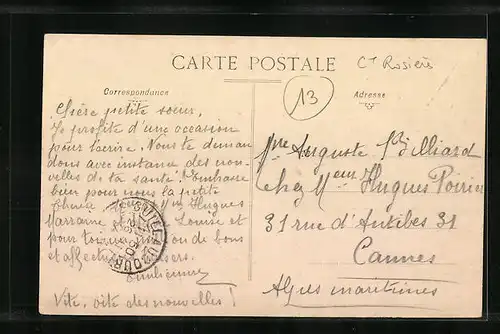 CARTE POSTALE
Ct Rosiers
Correspondance
Adresse
13
Chère petite sœur,
Je profite d'une occasion
pour t'écrire. Nous te deman
dons avec instance des nou-
velles de ta santé. Embrasse
bien pour nous la petite
Hugues
Marraine Louise et
pour toi de bons
et affectueux baisers.
Vite, vite des nouvelles !
Auguste Billiard
Chez Hugues Poirier
31 rue d'Antibes 31
Cannes
Alpes maritimes